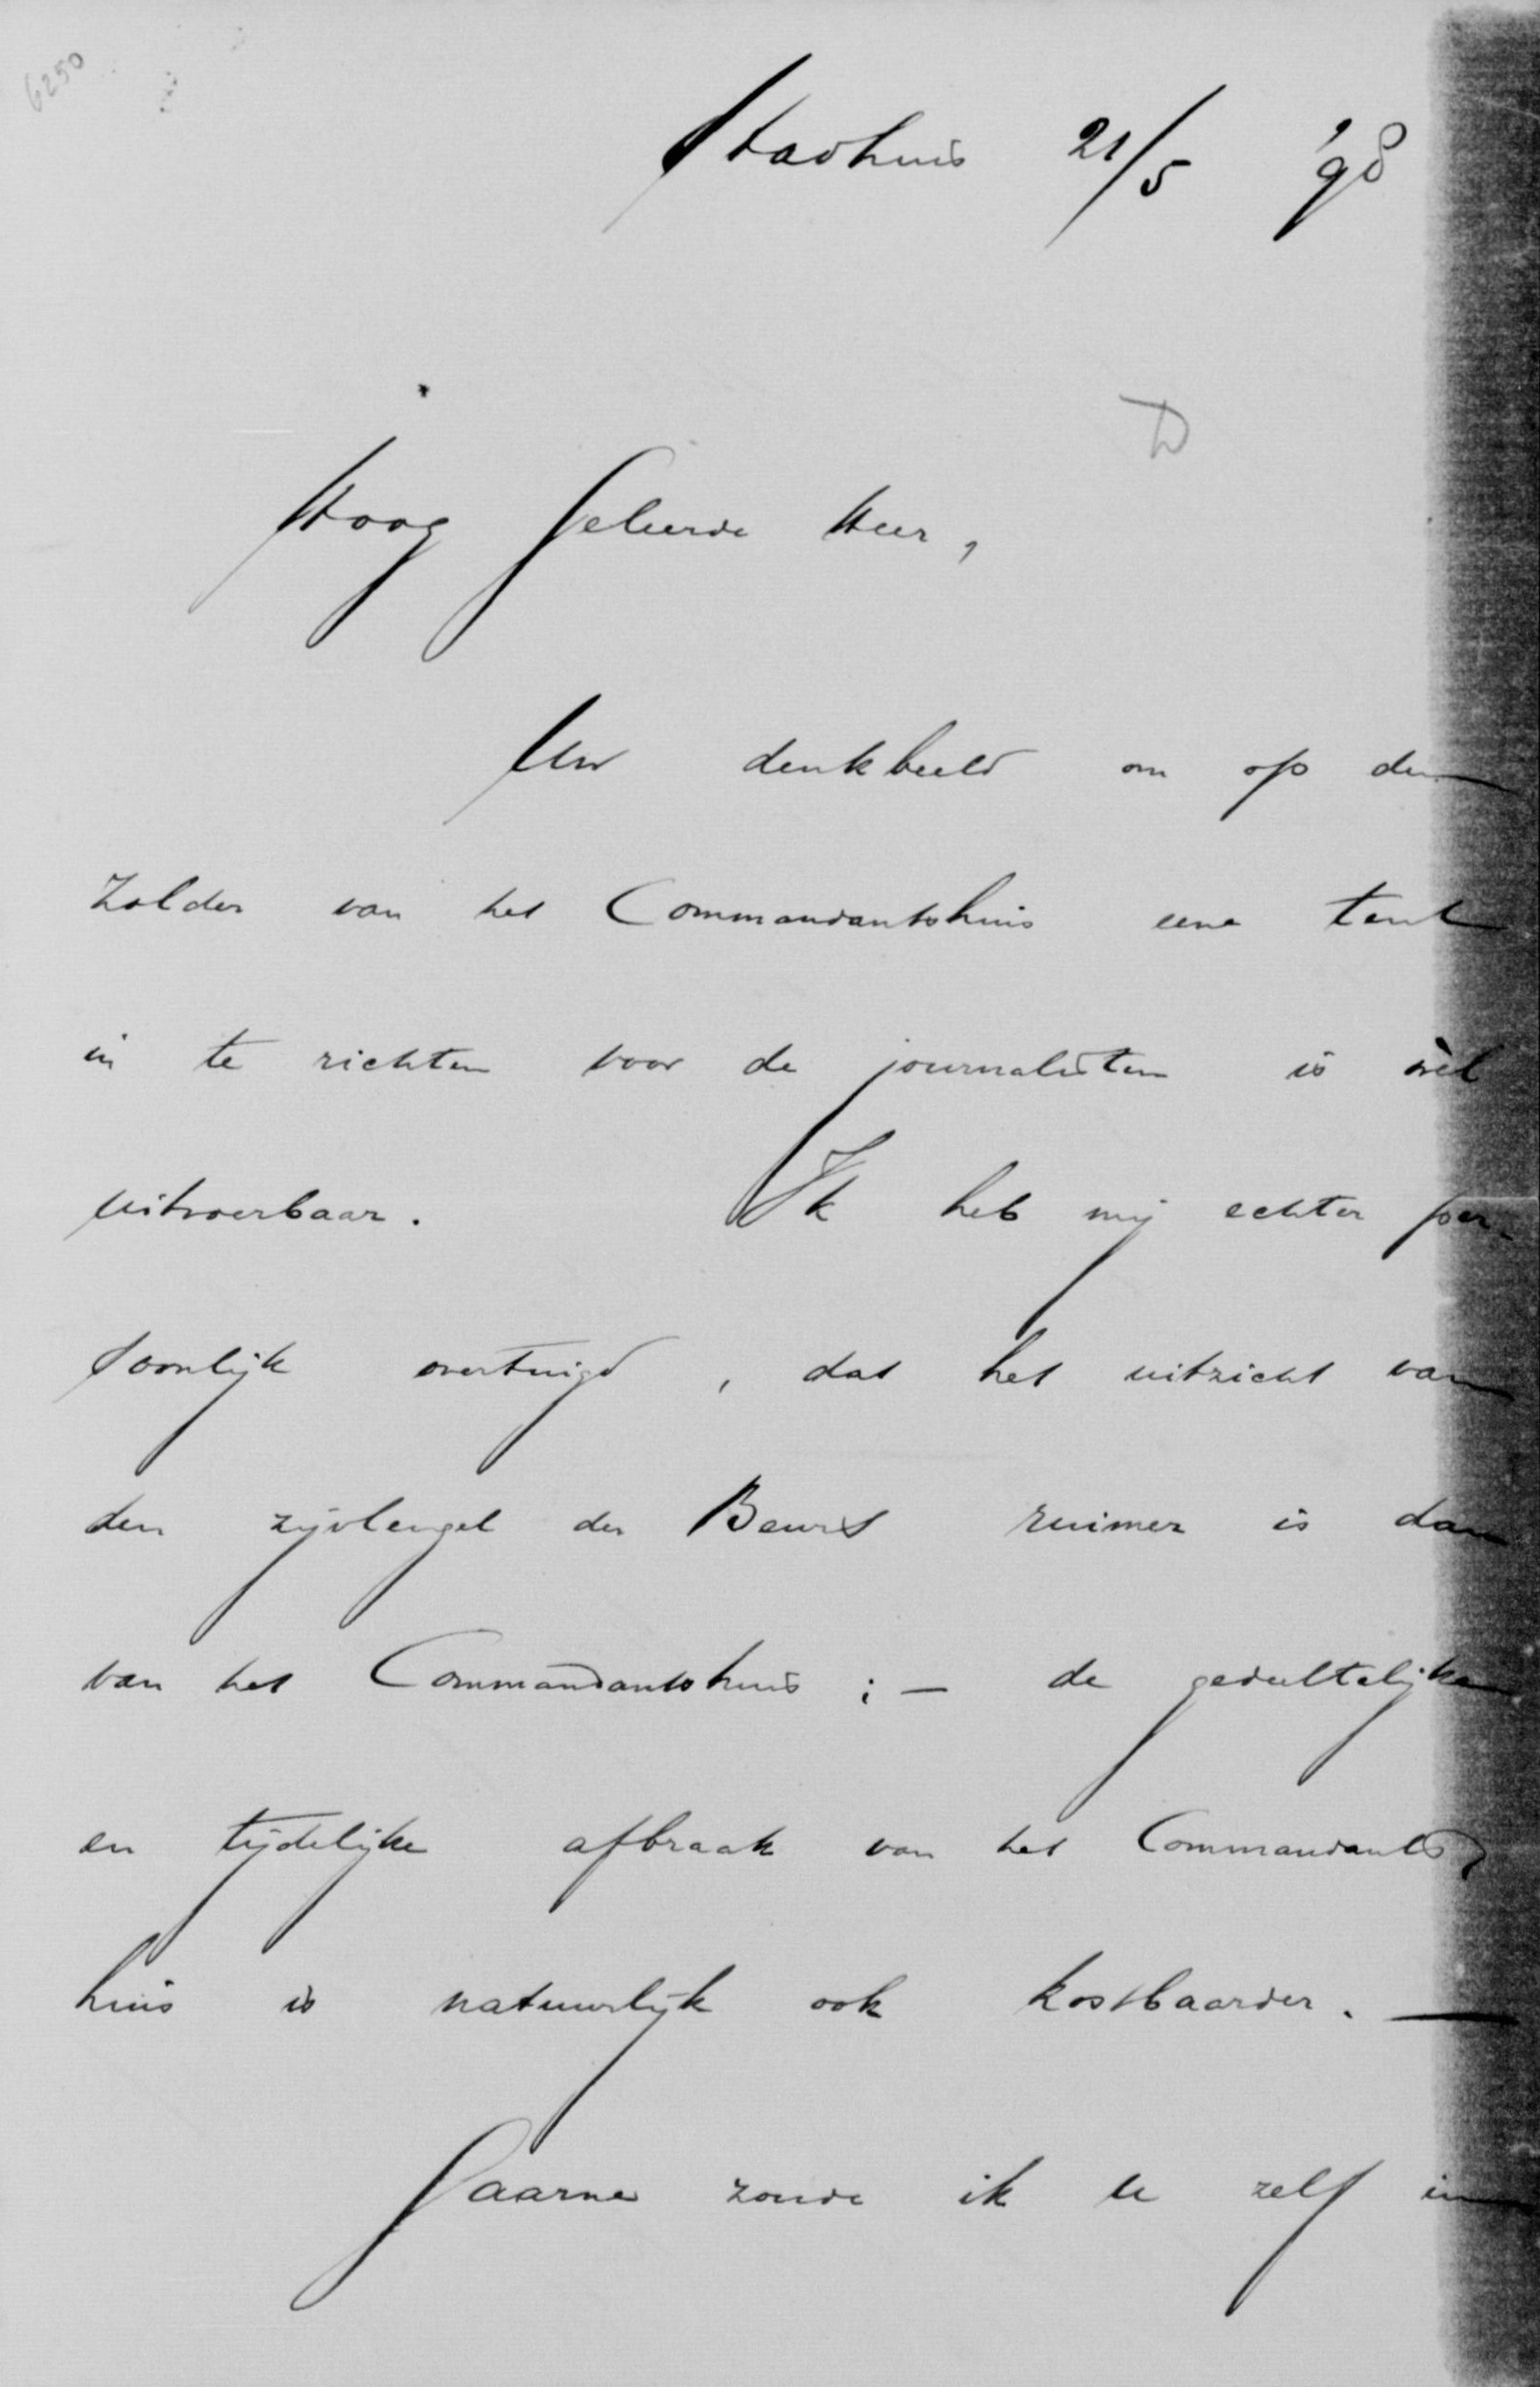 6250
Stadhuis 21/5 '98
D
Hoog Geleerde Heer,
Uw denkbeeld om op den
Zolder van het Commandantshuis eene tent
in te richten voor de journalisten is wèl
uitvoerbaar. Ik heb mij echter per-
soonlijk overtuigd, dat het uitzicht van
den zijvleugel der Beurs ruimer is dan
van het Commandantshuis ; — de gedeeltelijke
en tijdelijke afbraak van het Commandants-
huis is natuurlijk ook kostbaarder. —
Gaarne zoude ik U zelf in